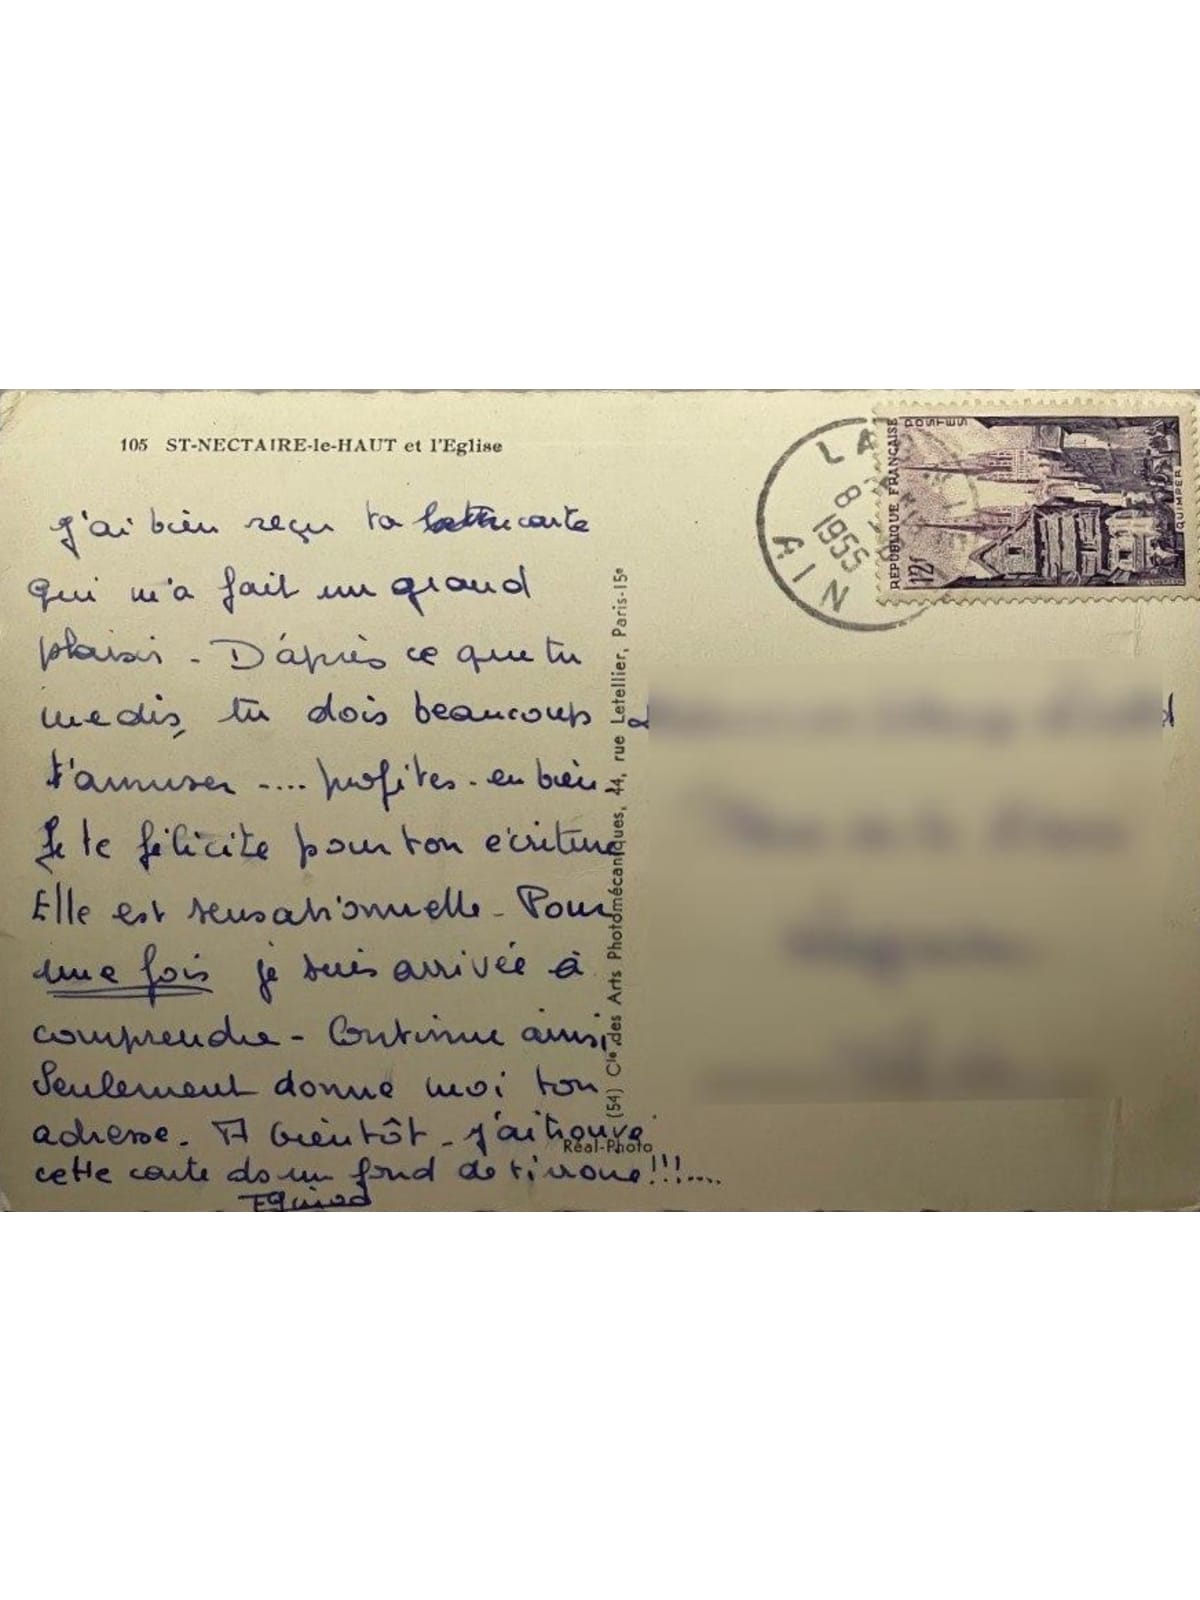 105 ST-NECTAIRE-le-HAUT et l'Eglise
J'ai bien reçu ta carte
qui m'a fait un grand
plaisir - D'après ce que tu
me dis, tu dois beaucoup
t'amuser .... profites-en bien.
Je te félicite pour ton écriture
Elle est sensationnelle - Pour
une fois je suis arrivée à
comprendre - Continue ainsi,
Seulement donne moi ton
adresse. A bientôt - J'ai trouvé
cette carte ds un fond de tiroir !!!....
(54) Cie des Arts Photomécaniques, 44, rue Letellier, Paris-15e
Réal-Photo
LA
8
1955
AIN
REPUBLIQUE FRANÇAISE
POSTES
12F
QUIMPER